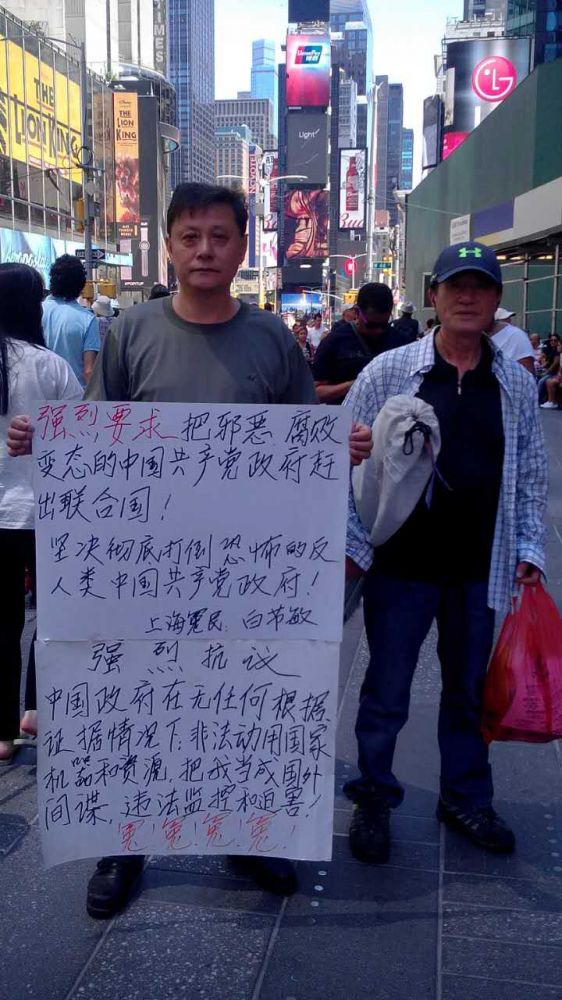 TIMES
THE
LION KING
Disney
THE
LION
KING
UnionPay
银联
Light
LG
Bud
强烈要求把邪恶腐败
变态的中国共产党政府赶
出联合国!
坚决彻底打倒恐怖的反
人类中国共产党政府!
上海冤民:白节敏
强烈抗议
中国政府在无任何根据
证据情况下;非法动用国家
机器和资源,把我当成国外
间谍,违法监控和迫害!
冤!冤!冤!冤!